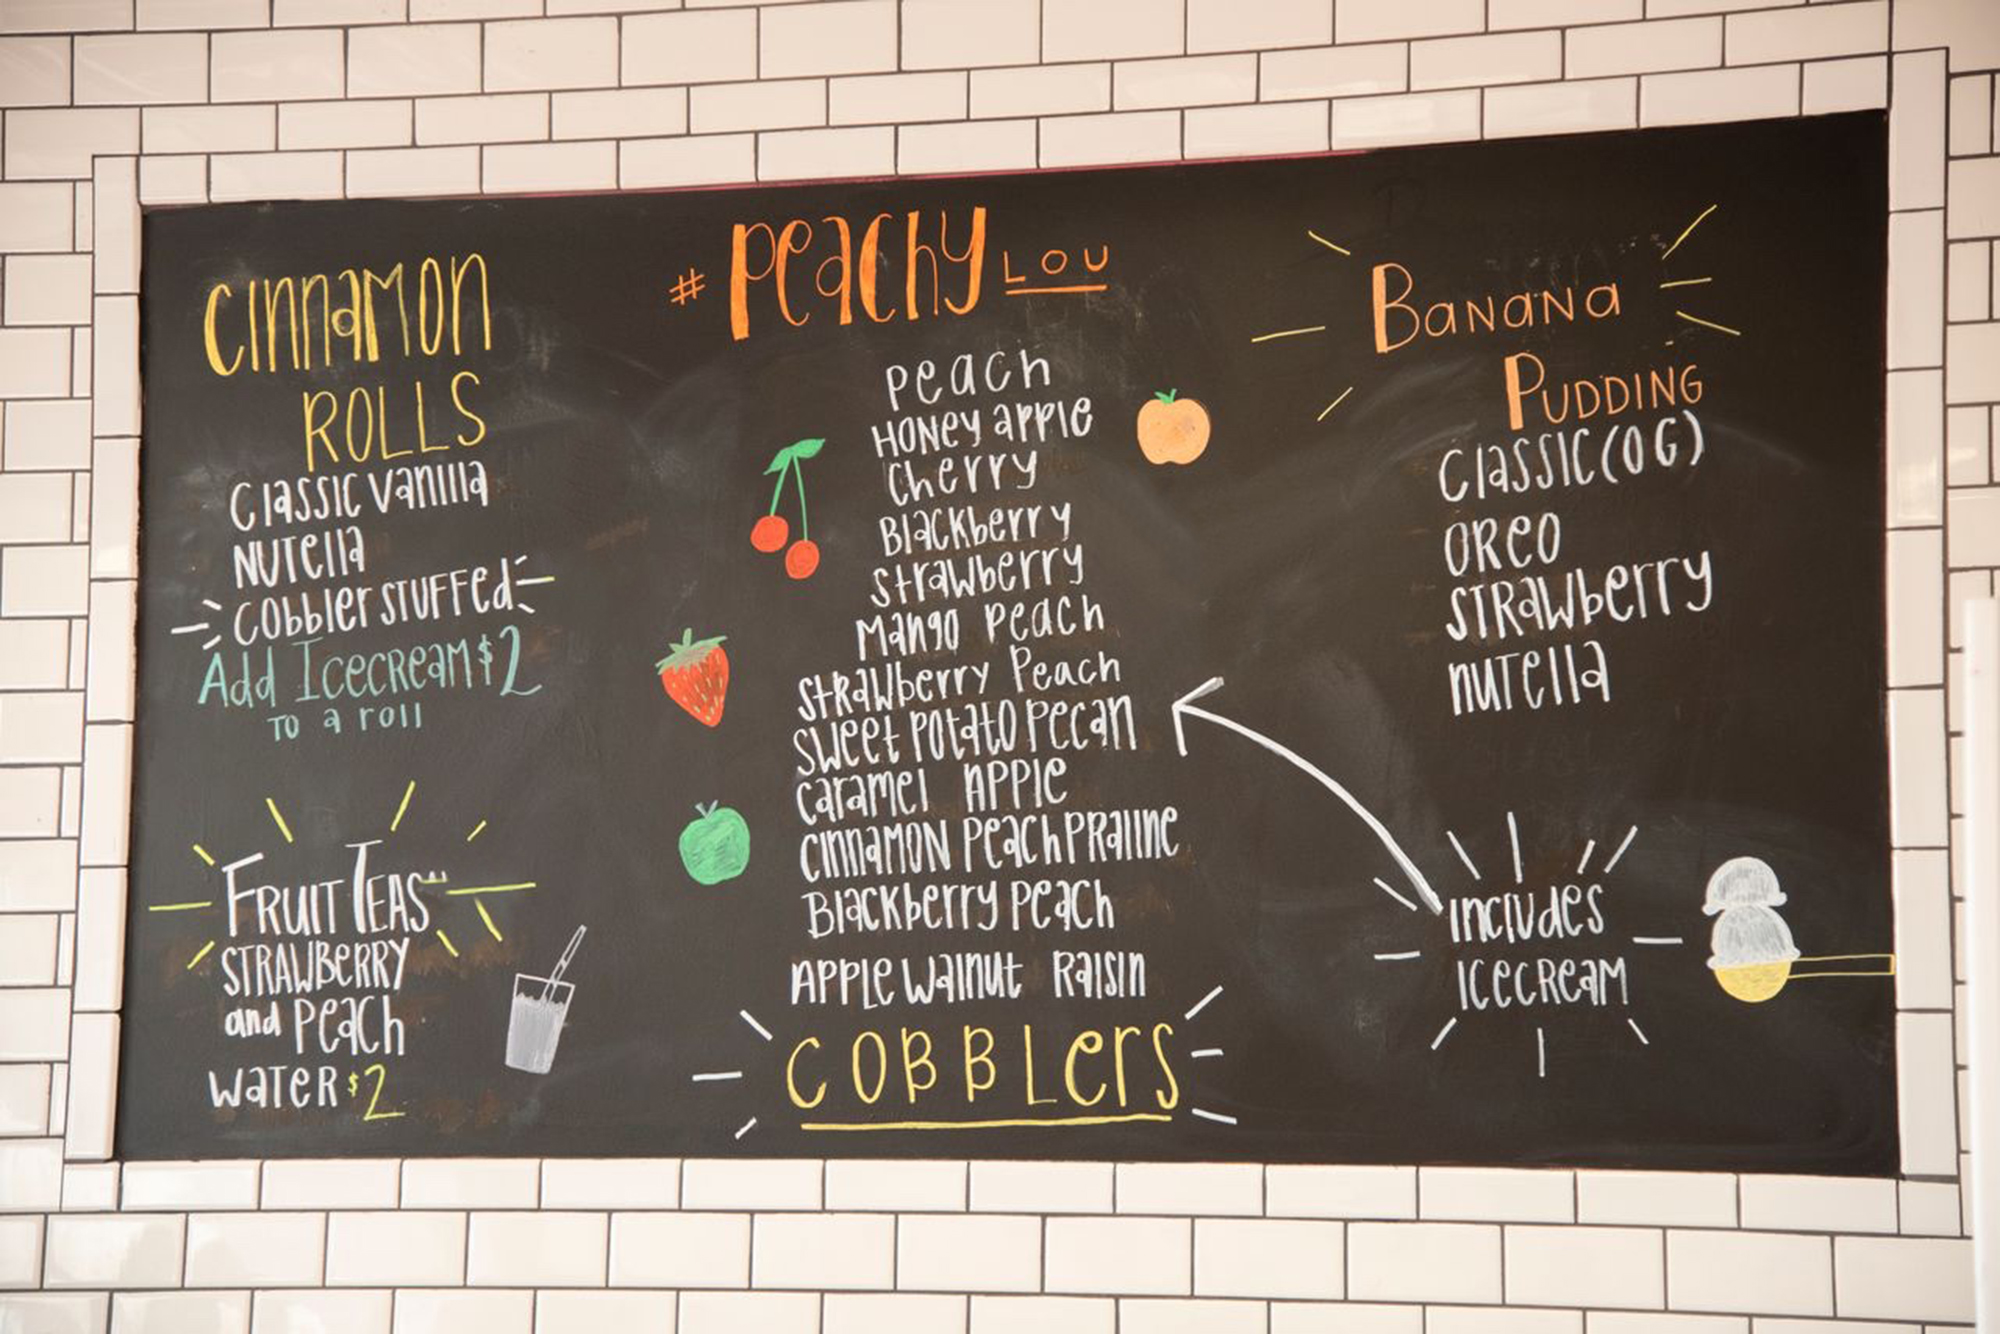 Cinnamon
Rolls
Classic Vanilla
Nutella
Cobbler Stuffed
Add Icecream $2
to a roll
Fruit Teas
Strawberry
and Peach
Water $2
# Peachy Lou
Peach
Honey apple
Cherry
Blackberry
Strawberry
Mango Peach
Strawberry Peach
Sweet Potato Pecan
Caramel Apple
Cinnamon Peach Praline
Blackberry Peach
Apple Walnut Raisin
Cobblers
Banana
Pudding
Classic (OG)
Oreo
Strawberry
Nutella
includes
icecream